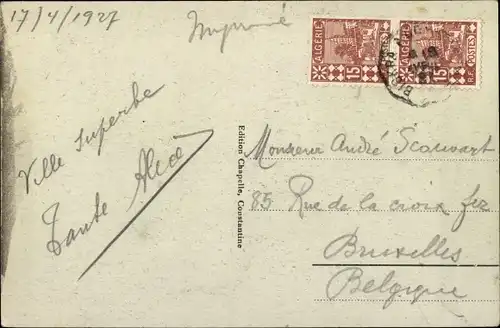 17/4/1927
Imprimé
ALGÉRIE
15
R.F. POSTES
ALGÉRIE
15
R.F. POSTES
Ville superbe
Tante Alice
Edition Chapelle, Constantine
Monsieur André Scauvart
85 Rue de la croix fer
Bruxelles
Belgique